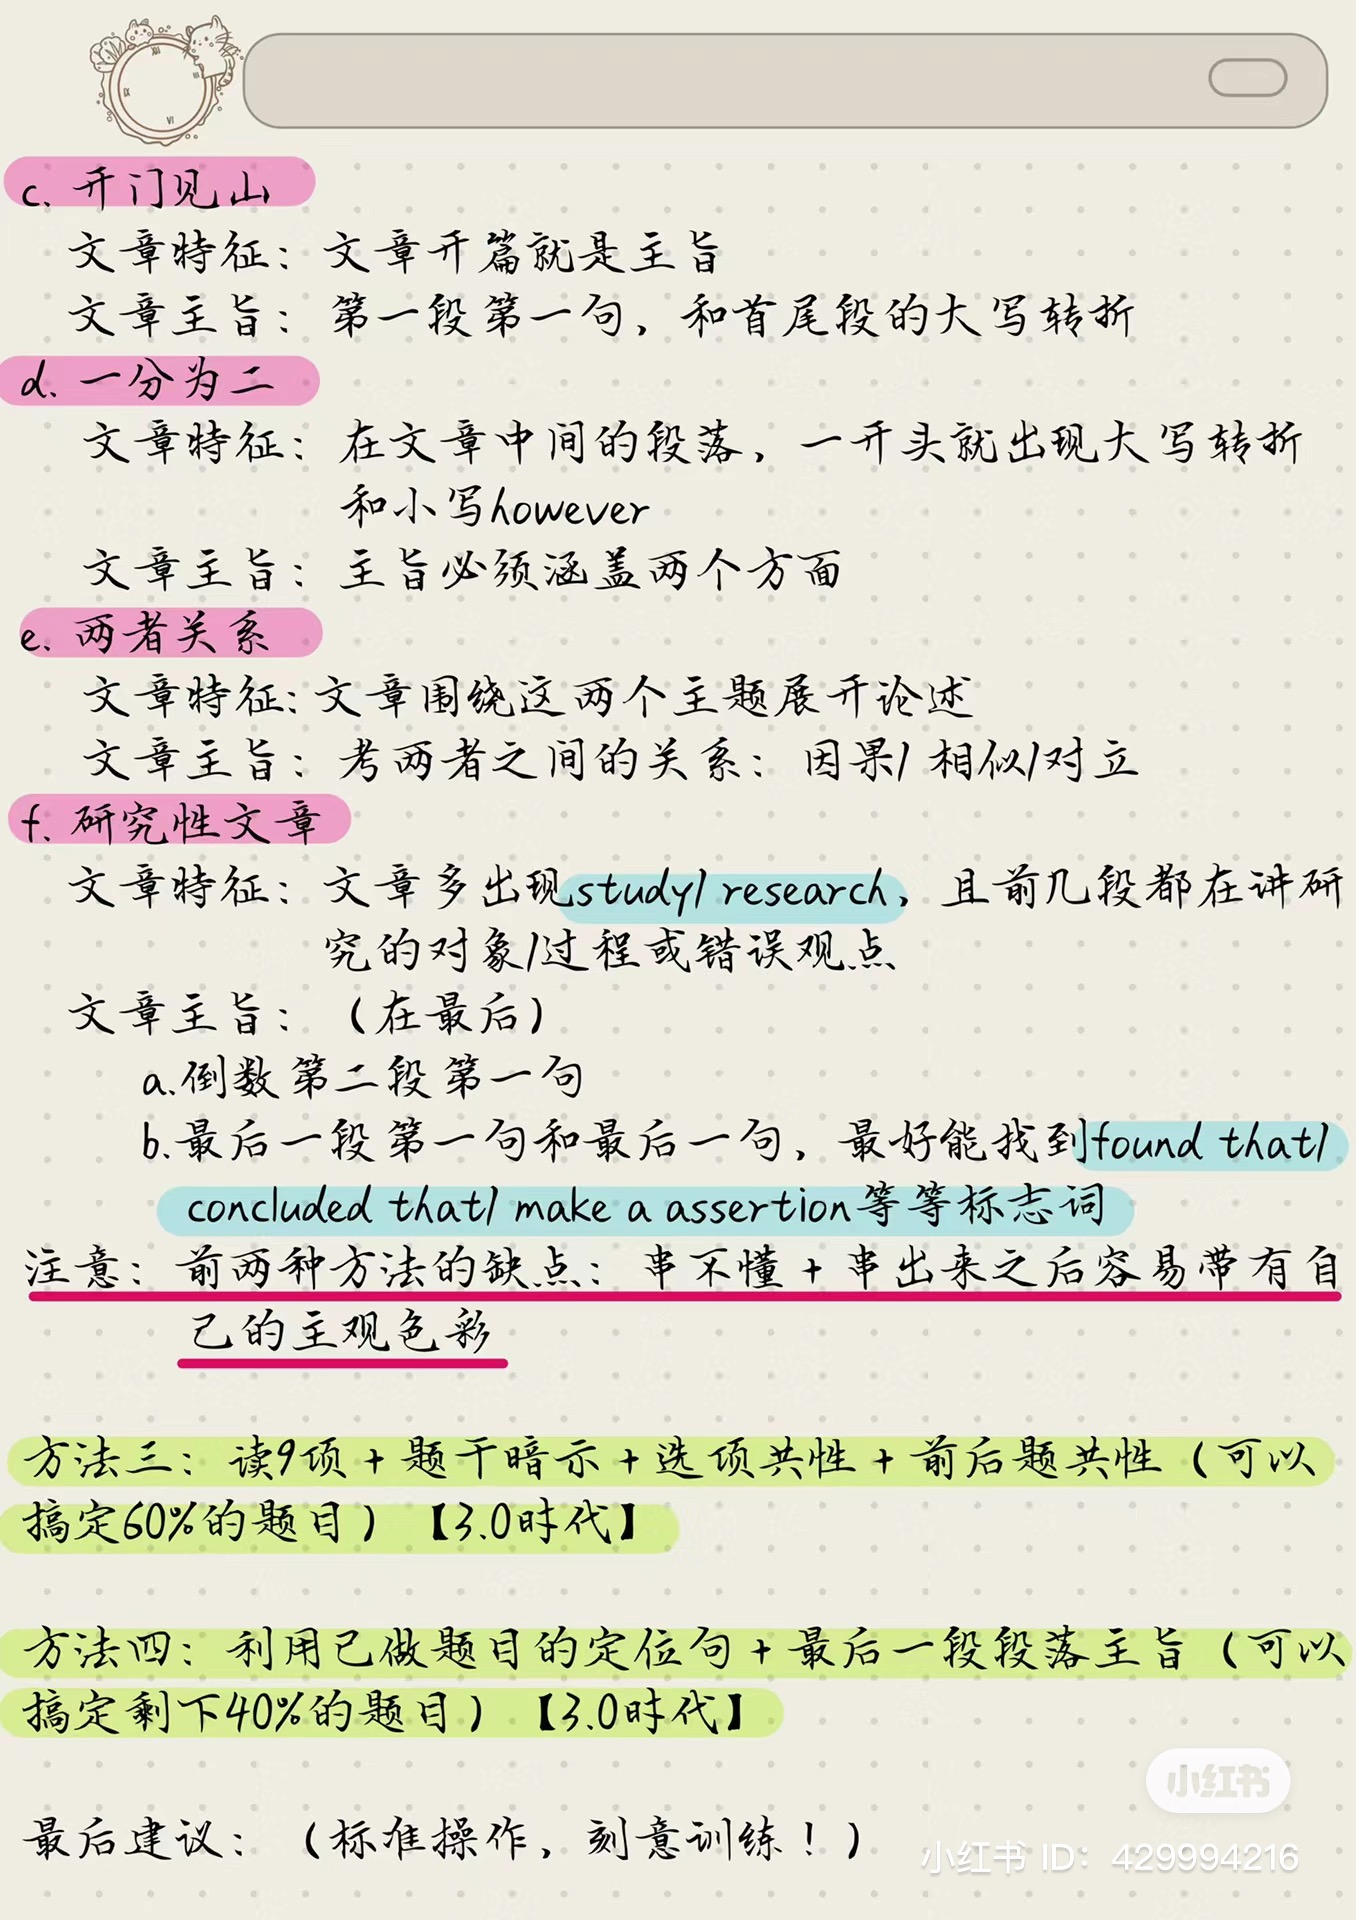 c. 开门见山
文章特征：文章开篇就是主旨
文章主旨：第一段第一句，和首尾段的大写转折
d. 一分为二
文章特征：在文章中间的段落，一开头就出现大写转折
和小写however
文章主旨：主旨必须涵盖两个方面
e. 两者关系
文章特征：文章围绕这两个主题展开论述
文章主旨：考两者之间的关系：因果/ 相似/对立
f. 研究性文章
文章特征：文章多出现study/ research，且前几段都在讲研
究的对象/过程或错误观点
文章主旨：（在最后）
a.倒数第二段第一句
b.最后一段第一句和最后一句，最好能找到found that/
concluded that/ make a assertion等等标志词
注意：前两种方法的缺点：串不懂+串出来之后容易带有自
己的主观色彩
方法三：读9项+题干暗示+选项共性+前后题共性（可以
搞定60%的题目）【3.0时代】
方法四：利用已做题目的定位句+最后一段段落主旨（可以
搞定剩下40%的题目）【3.0时代】
小红书
最后建议：（标准操作，刻意训练！）
小红书 ID：429994216